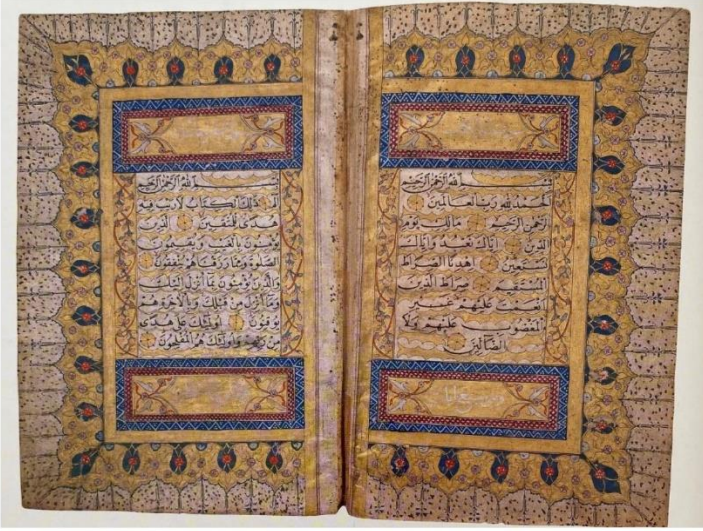 بسم الله الرحمن الرحيم
الحمد لله رب العالمين
الرحمن الرحيم مالك يوم
الدين إياك نعبد وإياك
نستعين اهدنا الصراط
المستقيم صراط الذين
أنعمت عليهم غير
المغضوب عليهم ولا
الضالين
بسم الله الرحمن الرحيم
الم ذلك الكتاب لا ريب فيه
هدى للمتقين الذين
يؤمنون بالغيب ويقيمون
الصلوة ومما رزقناهم ينفقون
والذين يؤمنون بما أنزل إليك
وما أنزل من قبلك وبالآخرة هم
يوقنون أولئك على هدى
من ربهم وأولئك هم المفلحون